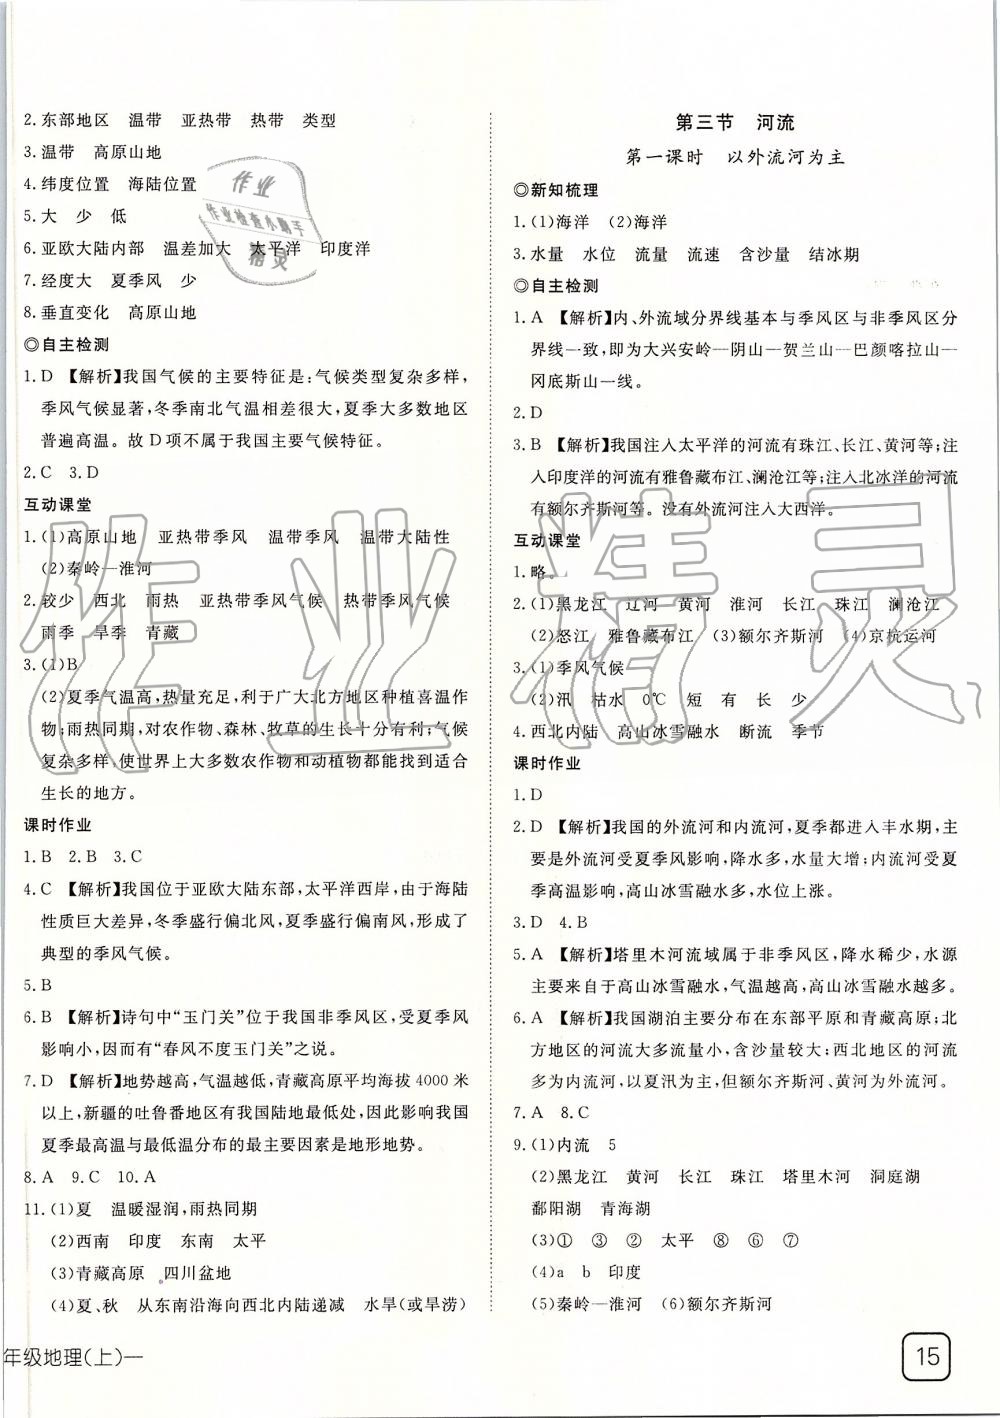 2.东部地区　温带　亚热带　热带　类型
3.温带　高原山地
4.纬度位置　海陆位置
5.大　少　低
6.亚欧大陆内部　温差加大　太平洋　印度洋
7.经度大　夏季风　少
8.垂直变化　高原山地
◎自主检测
1.D 【解析】我国气候的主要特征是:气候类型复杂多样,
季风气候显著,冬季南北气温相差很大,夏季大多数地区
普遍高温。故D项不属于我国主要气候特征。
2.C 3.D
互动课堂
1.(1)高原山地　亚热带季风　温带季风　温带大陆性
(2)秦岭—淮河
2.较少　西北　雨热　亚热带季风气候　热带季风气候
雨季　旱季　青藏
3.(1)B
(2)夏季气温高,热量充足,利于广大北方地区种植喜温作
物;雨热同期,对农作物、森林、牧草的生长十分有利;气候
复杂多样,使世界上大多数农作物和动植物都能找到适合
生长的地方。
课时作业
1.B 2.B 3.C
4.C 【解析】我国位于亚欧大陆东部,太平洋西岸,由于海陆
性质巨大差异,冬季盛行偏北风,夏季盛行偏南风,形成了
典型的季风气候。
5.B
6.B 【解析】诗句中“玉门关”位于我国非季风区,受夏季风
影响小,因而有“春风不度玉门关”之说。
7.D 【解析】地势越高,气温越低,青藏高原平均海拔4000米
以上,新疆的吐鲁番地区有我国陆地最低处,因此影响我国
夏季最高温与最低温分布的最主要因素是地形地势。
8.A 9.C 10.A
11.(1)夏　温暖湿润,雨热同期
(2)西南　印度　东南　太平
(3)青藏高原　四川盆地
(4)夏、秋　从东南沿海向西北内陆递减　水旱(或旱涝)
年级地理(上)—
第三节　河流
第一课时　以外流河为主
◎新知梳理
1.(1)海洋　(2)海洋
3.水量　水位　流量　流速　含沙量　结冰期
◎自主检测
1.A 【解析】内、外流域分界线基本与季风区与非季风区分
界线一致,即为大兴安岭—阴山—贺兰山—巴颜喀拉山—
冈底斯山一线。
2.D
3.B 【解析】我国注入太平洋的河流有珠江、长江、黄河等;注
入印度洋的河流有雅鲁藏布江、澜沧江等;注入北冰洋的河流
有额尔齐斯河等。没有外流河注入大西洋。
互动课堂
1.略。
2.(1)黑龙江　辽河　黄河　淮河　长江　珠江　澜沧江
(2)怒江　雅鲁藏布江　(3)额尔齐斯河　(4)京杭运河
3.(1)季风气候
(2)汛　枯水　0℃　短　有　长　少
4.西北内陆　高山冰雪融水　断流　季节
课时作业
1.D
2.D 【解析】我国的外流河和内流河,夏季都进入丰水期,主
要是外流河受夏季风影响,降水多,水量大增;内流河受夏
季高温影响,高山冰雪融水多,水位上涨。
3.D 4.B
5.A 【解析】塔里木河流域属于非季风区,降水稀少,水源
主要来自于高山冰雪融水,气温越高,高山冰雪融水越多。
6.A 【解析】我国湖泊主要分布在东部平原和青藏高原;北
方地区的河流大多流量小,含沙量较大;西北地区的河流
多为内流河,以夏汛为主,但额尔齐斯河、黄河为外流河。
7.A 8.C
9.(1)内流　5
(2)黑龙江　黄河　长江　珠江　塔里木河　洞庭湖
鄱阳湖　青海湖
(3)①　③　②　太平　⑧　⑥　⑦
(4)a　b　印度
(5)秦岭—淮河　(6)额尔齐斯河
15
作业
作业检查小助手
精灵
作业精灵